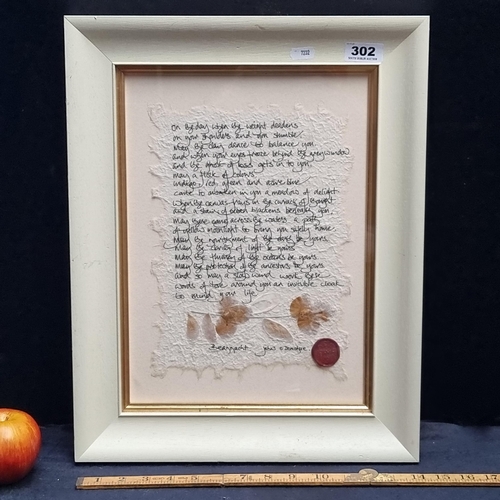 302
On the day when the weight deadens
on your shoulders and you stumble,
May the clay dance to balance you.
and when your eyes freeze behind the grey window
and the ghost of loss gets in to you
may a flock of colours
indigo, red, green and azure blue
come to awaken in you a meadow of delight
When the canvas frays in the curach of thought
and a stain of ocean blackens beneath you
May there come across the waters a path
of yellow moonlight to bring you safely home
May the nourishment of the earth be yours
May the clarity of light be yours
May the fluency of the ocean be yours
May the protection of the ancestors be yours
and so may a slow wind work these
words of love around you an invisible cloak
to mind your life
Beannacht John O'Donohue
1 2 3 4 5 6 7 8 9 10